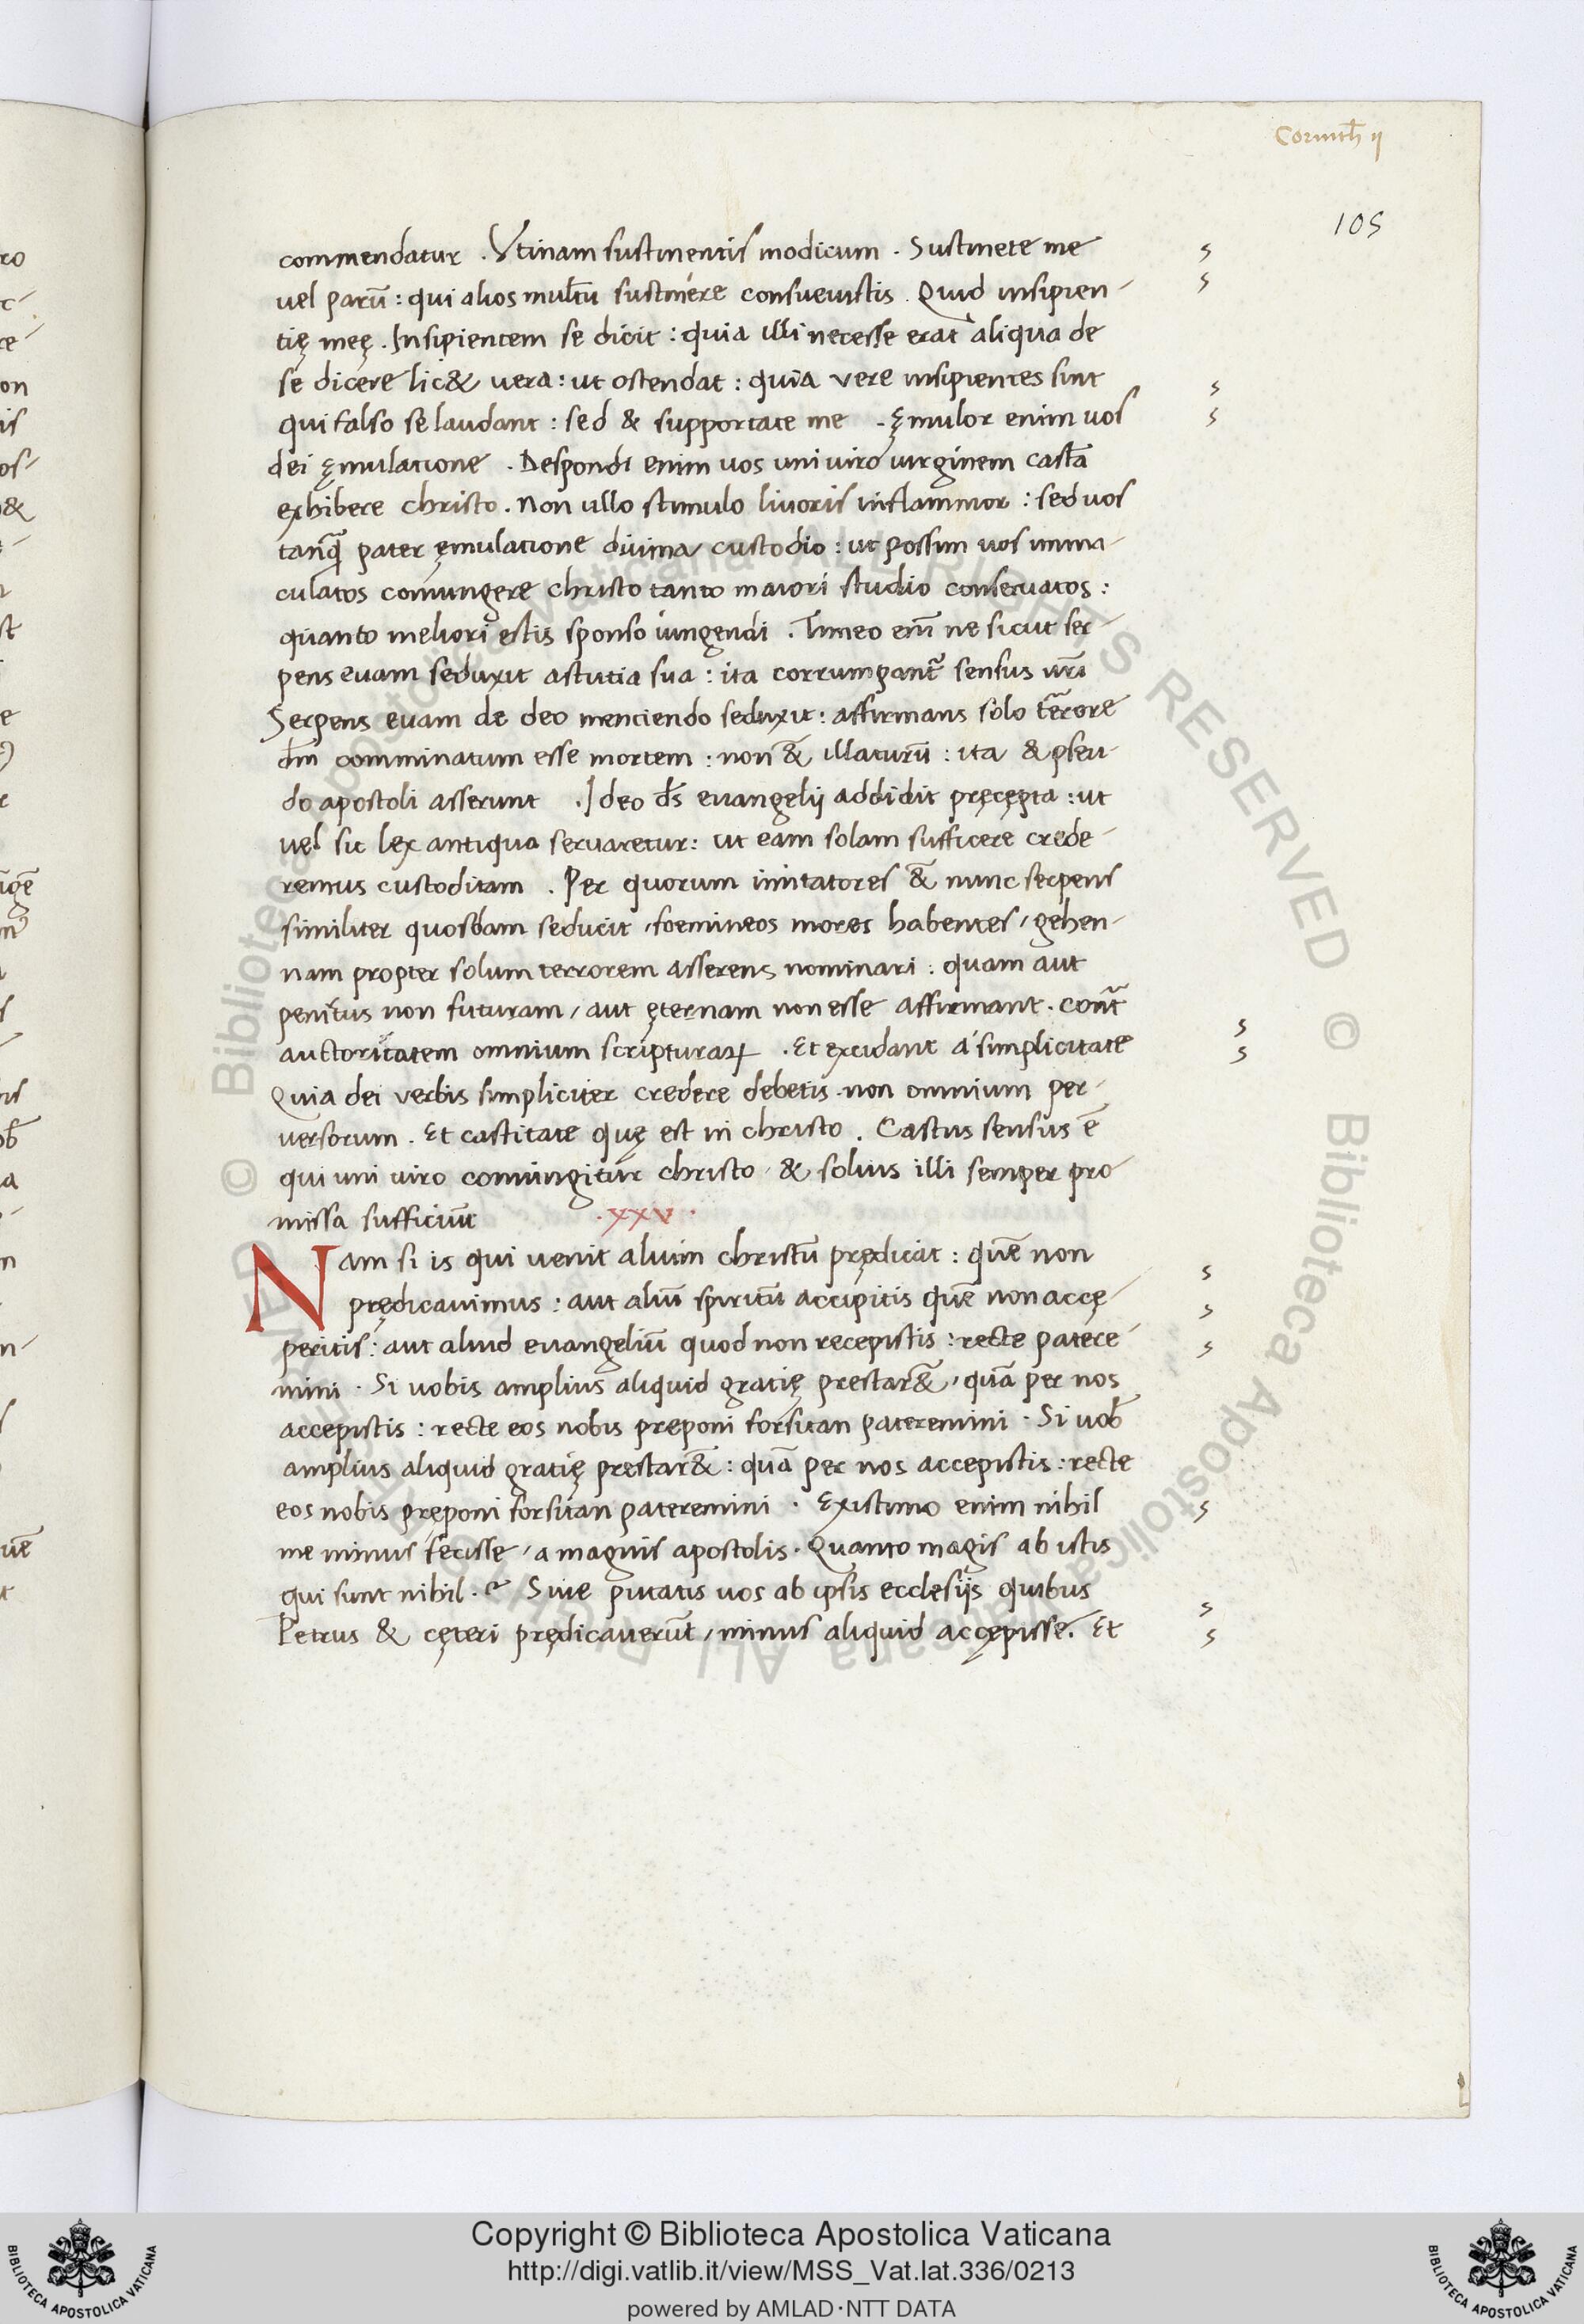 Corinth̄ ij
105
commendatur . Vtinam sustinentis modicum . Sustinete me
uel parū : qui alios multū sustinere consueuistis . Quid insipien-
tię meę . Insipientem se dicit : quia illi necesse erat aliqua de
se dicere lic& vera : ut ostendat : quia vere insipientes sint
qui falso se laudant : sed & supportate me . Ęmulor enim uos
dei ęmulatione . Despondi enim uos uni viro virginem castā
exhibere christo . Non ullo stimulo liuoris inflammor : sed uos
tanq̄ pater ęmulatione diuina custodio : ut possim uos imma-
culatos coniungere christo tanto maiori studio conseruatos :
quanto meliori estis sponso iungendi . Timeo em̄ ne sicut ser-
pens euam seduxit astutia sua : ita corrumpant᷑ sensus ur̄i
Serpens euam de deo menciendo seduxit : affirmans solo t̄rrore
dm̄ comminatum esse mortem : non & illaturū : ita & pseu-
do apostoli asserunt . Ideo ds̄ euangelij addidit pręcępta : ut
uel sic lex antiqua seruaretur : ut eam solam sufficere crede-
remus custoditam . Per quorum imitatores & nunc serpens
similiter quosdam seducit / foemineos mores habentes / gehen-
nam propter solum terrorem asserens nominari : quam aut
penitus non futuram / aut ęternam non esse affirmant . cont᷑
auctoritatem omnium scripturaꝝ . Et excidant á simplicitate
Quia dei verbis simpliciter credere debetis . non omnium per-
versorum . Et castitate quę est in christo . Castus sensus ē
qui uni viro coniungitur christo / & solius illi semper pro-
missa sufficiūt .xxv.
Nam si is qui uenit alium christū prędicat : quē non
prędicauimus : aut aliū spiritū accipitis quē non accę-
peritis : aut aliud euangeliū quod non recepistis : recte patere-
mini . Si uobis amplius aliquid gratię prestar& / quā per nos
accepistis : recte eos nobis preponi forsitan pateremini . Si uob̄
amplius aliquid gratię prestar& : quā per nos accepistis : recte
eos nobis pręponi forsitan pateremini . Existimo enim nihil
me minus fecisse / a magnis apostolis . Quanto magis ab istis
qui sunt nihil . Siue putatis uos ab ipsis ecclesijs quibus
Petrus & cęteri prędicauerūt / minus aliquid accępisse . Et
Copyright © Biblioteca Apostolica Vaticana
http://digi.vatlib.it/view/MSS_Vat.lat.336/0213
powered by AMLAD·NTT DATA